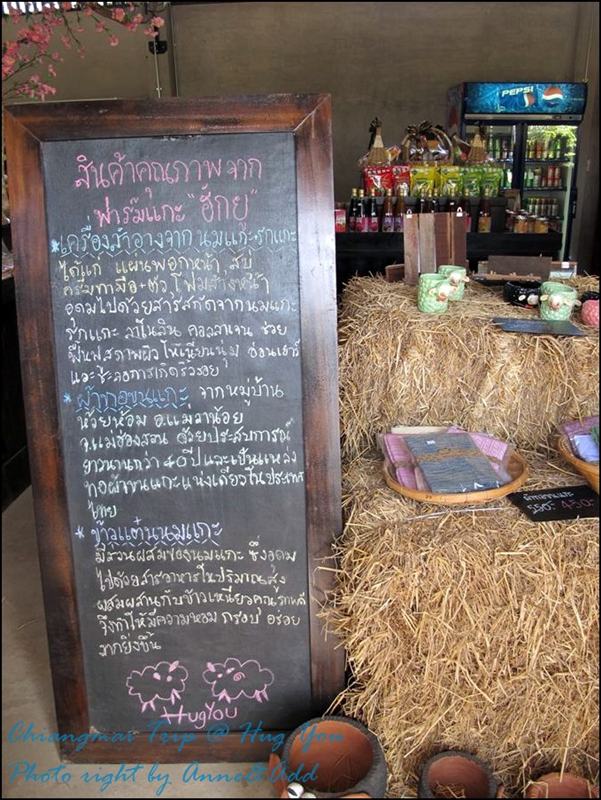 สินค้าคุณภาพจาก
ฟาร์มแกะ "ฮักยู"
* เครื่องสำอางจากนมแกะ-รกแกะ
ได้แก่ แผ่นพอกหน้า, สบู่
ครีมทามือ+ตัว โฟมล้างหน้า
อุดมไปด้วยสารสกัดจากนมแกะ
รกแกะ ลาโนลิน คอลลาเจน ช่วย
ฟื้นฟูสภาพผิวให้เนียนนุ่ม อ่อนเยาว์
และชะลอการเกิดริ้วรอย
* ผ้าทอขนแกะ จากหมู่บ้าน
ห้วยห้อม อ.แม่ลาน้อย
จ.แม่ฮ่องสอน ด้วยประสบการณ์
ยาวนานกว่า 40 ปี และเป็นแหล่ง
ทอผ้าขนแกะแห่งเดียวในประเทศ
ไทย
* ข้าวแต๋นนมแกะ
มีส่วนผสมของนมแกะ ซึ่งอุดม
ไปด้วยสารอาหารในปริมาณสูง
ผสมผสานกับข้าวเหนียวคุณภาพดี
จึงทำให้มีความหอม กรอบ อร่อย
มากยิ่งขึ้น
HugYou
PEPSI
550.- 450.-
Chiangmai Trip @ Hug You
Photo right by Annell&Add